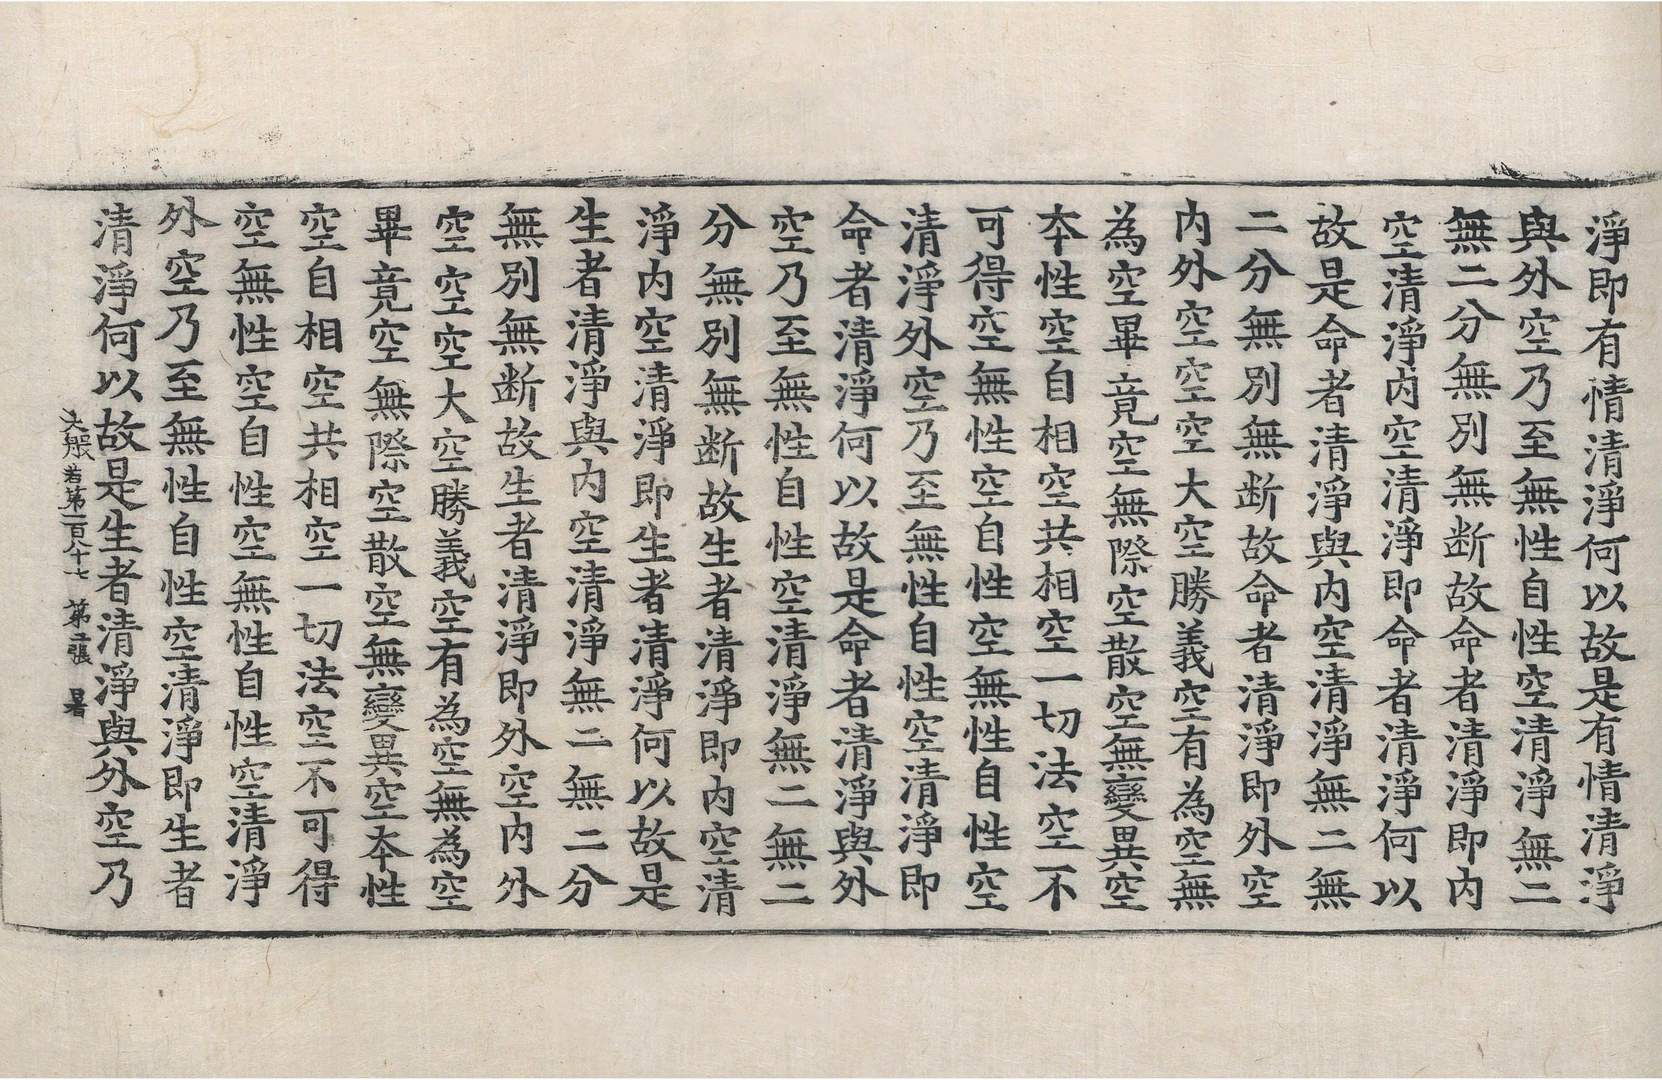 淨即有情清淨何以故是有情清淨
與外空乃至無性自性空清淨無二
無二分無別無断故命者清淨即內
空清淨內空清淨即命者清淨何以
故是命者清淨與內空清淨無二無
二分無別無断故命者清淨即外空
內外空空空大空勝義空有為空無
為空畢竟空無際空散空無變異空
本性空自相空共相空一切法空不
可得空無性空自性空無性自性空
清淨外空乃至無性自性空清淨即
命者清淨何以故是命者清淨與外
空乃至無性自性空清淨無二無二
分無別無断故生者清淨即內空清
淨內空清淨即生者清淨何以故是
生者清淨與內空清淨無二無二分
無別無断故生者清淨即外空內外
空空空大空勝義空有為空無為空
畢竟空無際空散空無變異空本性
空自相空共相空一切法空不可得
空無性空自性空無性自性空清淨
外空乃至無性自性空清淨即生者
清淨何以故是生者清淨與外空乃
大般若第一百八十七 第 張 暑